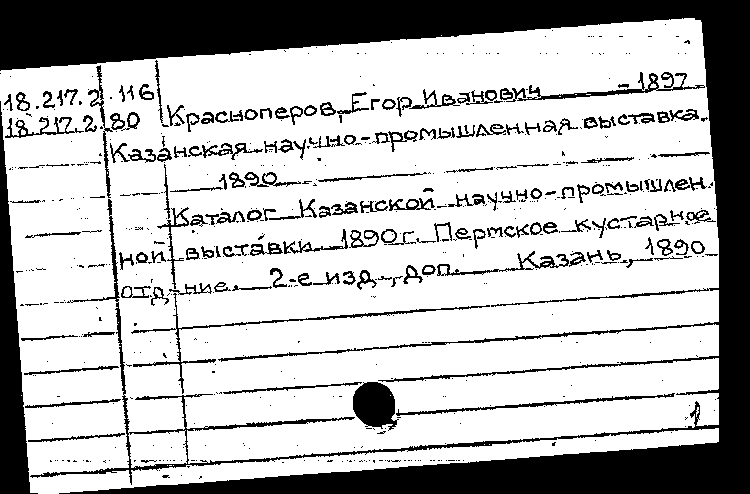 18.217.2 116
18.217.2 80 Красноперов, Егор Иванович – 1897
Казанская научно-промышленная выставка.
1890
Каталог Казанской научно-промышлен
ной выставки 1890 г. Пермское кустарное
отд-ние. 2-е изд., доп. Казань, 1890
1